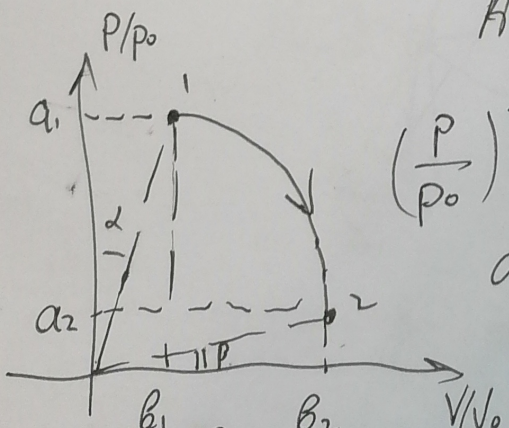 P/p₀
1
a₁
α
(P/p₀)
a₂
2
β
b₁
b₂
V/V₀